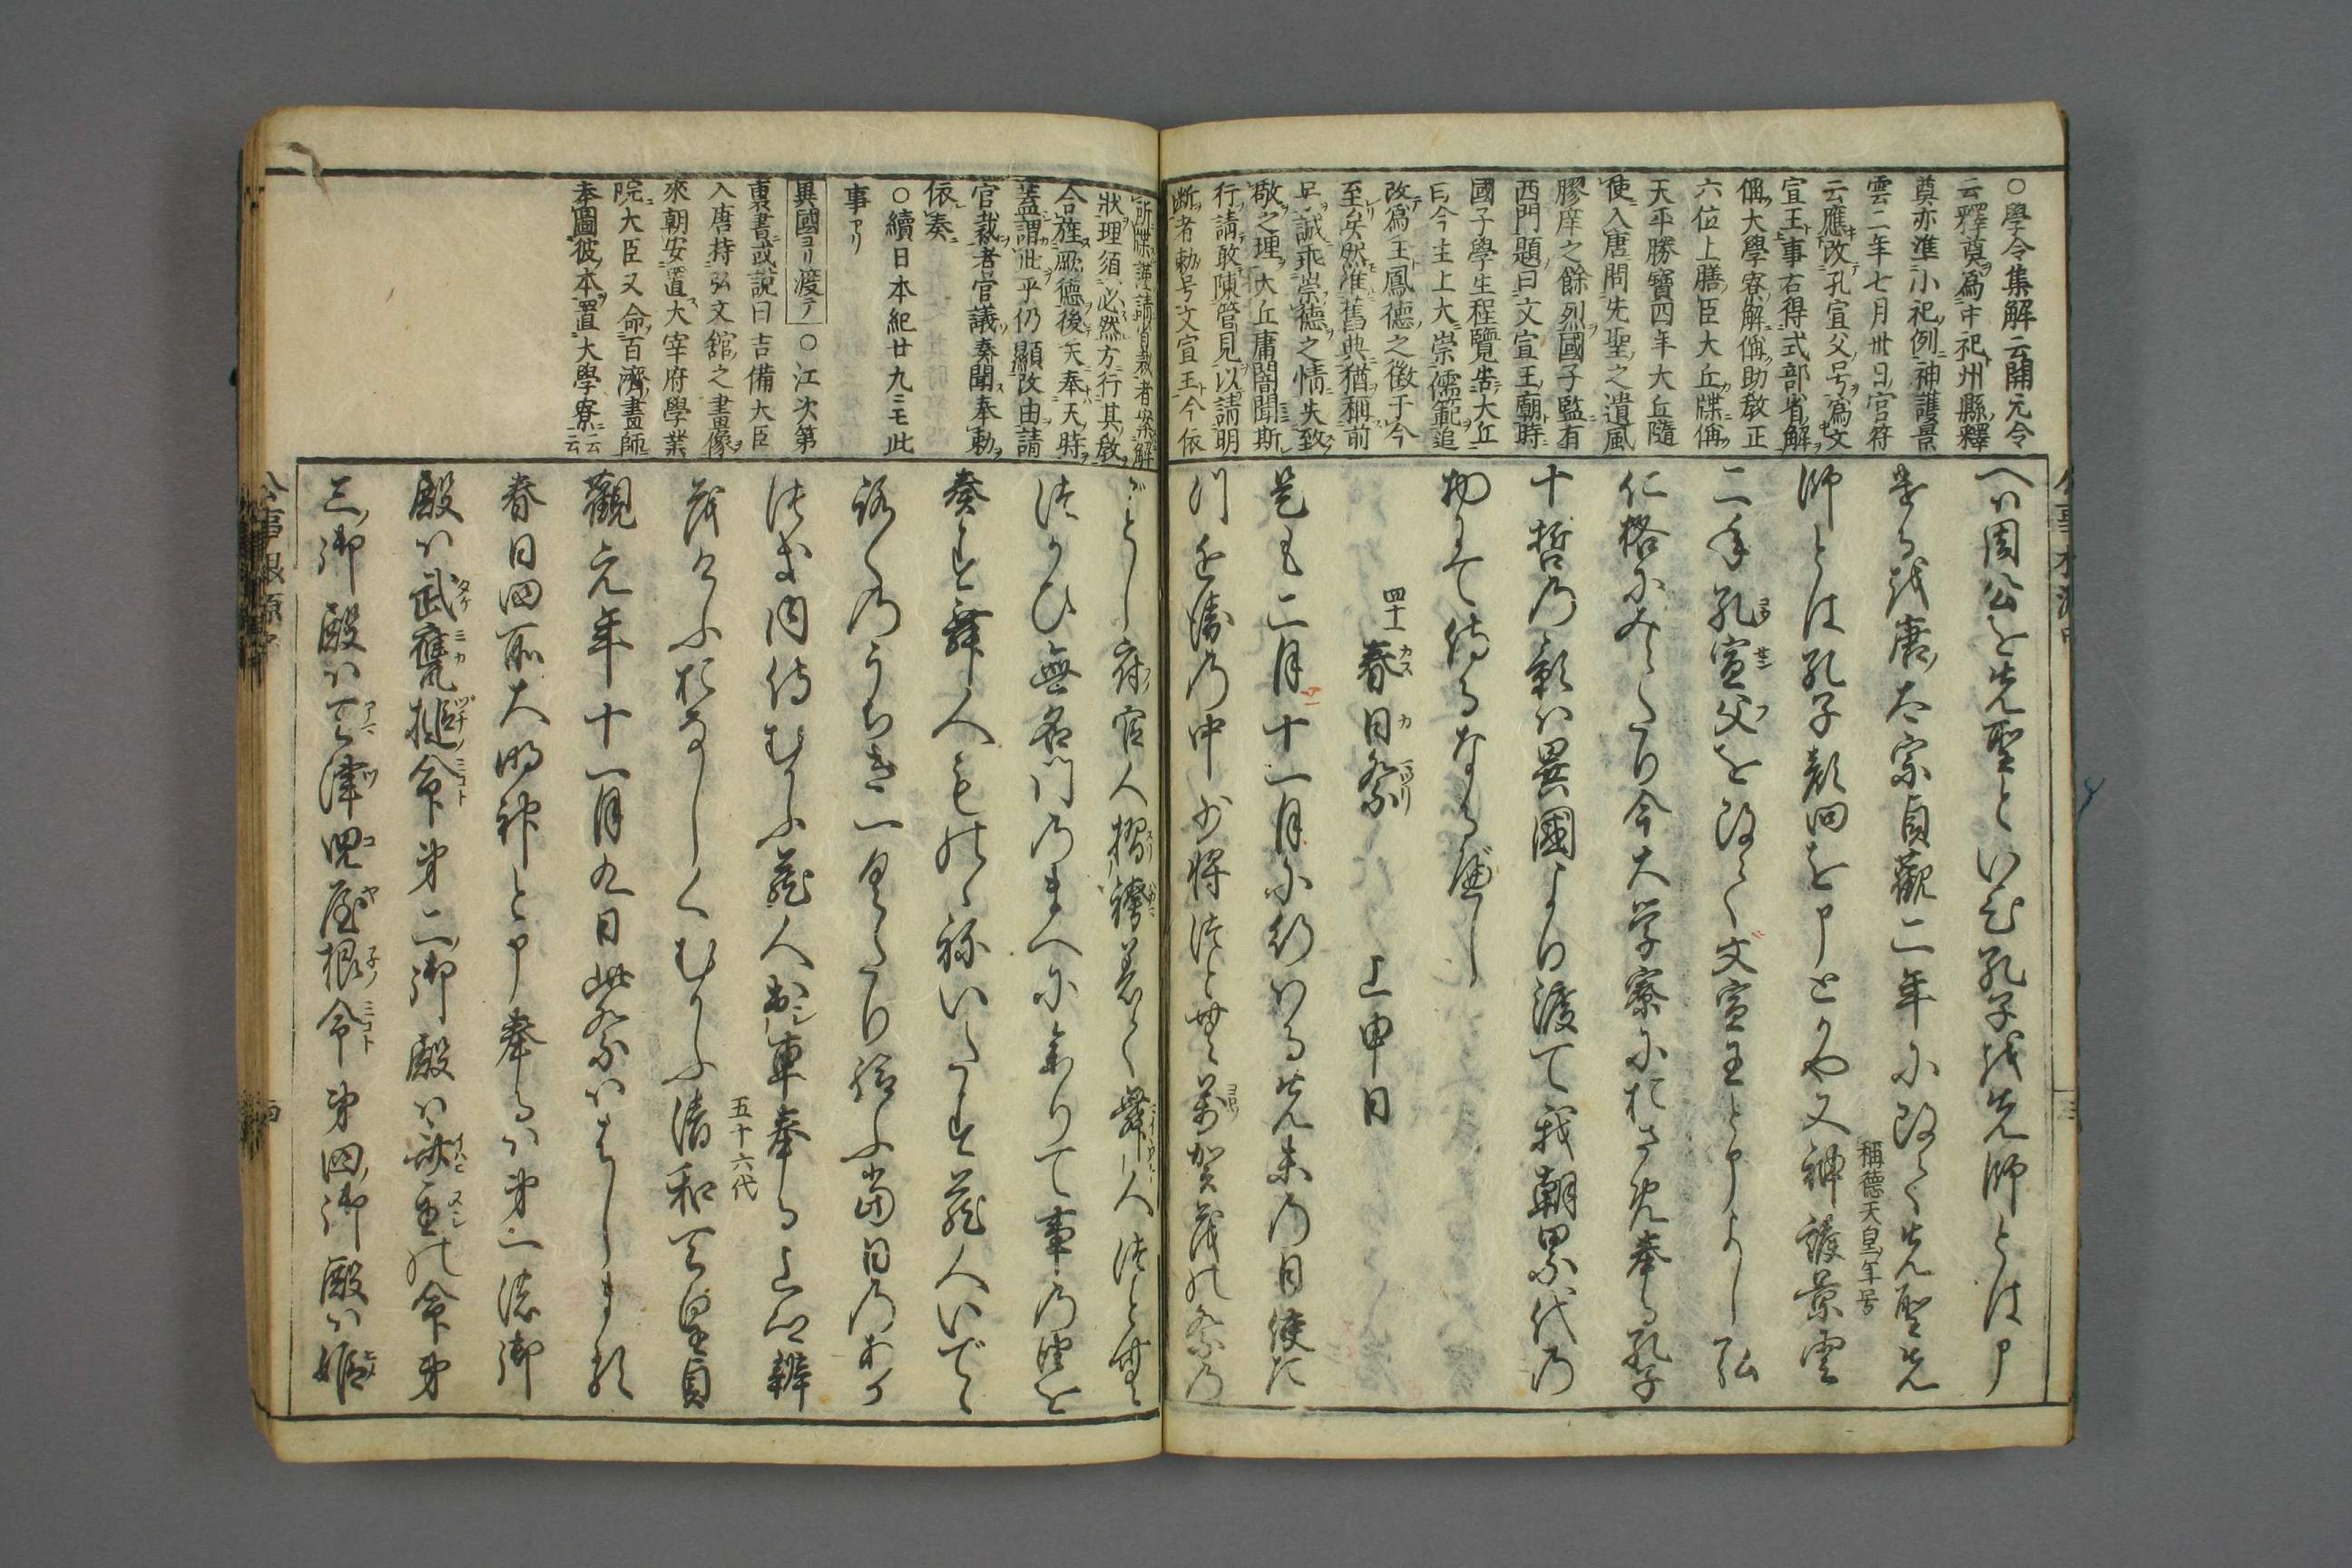 ○學令集解云開元令
云釋奠爲中祀州縣釋
奠亦準小祀例神護景
雲二年七月卅日官符
云應改孔宣父号爲文
宣王事右得式部省解
偁大學寮解偁助敎正
六位上膳臣大丘牒偁
天平勝寶四年大丘隨
使入唐問先聖之遺風
膠庠之餘烈國子監有
西門題曰文宣王廟時
國子學生程覽告大丘
曰今主上大崇儒範追
改爲王鳳德之徵于今
至矣然准舊典猶稱前
号誠乖崇德之情失致
敬之理大丘庸闇聞斯
行請敢陳管見以請明
断者勅号文宣王今依
へハ周公を先聖といひ孔子を先師とは申
きるを唐ノ太宗貞觀二年に改て先聖先
師とは孔子顔回を申とかや又神護景雲
稱德天皇ノ年号
二年孔宣父を改て文宣王と申よし弘
仁格にみえたり今大学寮におさめ奉る孔子
十哲乃影ハ異國より渡て我朝累代乃
物にて侍るなるべし
四十一 春日祭 上申日
是も二月十一月に行はる先未乃日使た
つ近衛乃中少將つとむ萬賀茂の祭乃
所牒謹請官裁者案解
狀理須必然方行其敎
合旌厥德後天奉天時
蓋謂此乎仍顯改由請
官裁者官議奏聞奉勅
依奏
○續日本紀廿九ニモ此
事アリ
異國ヨリ渡テ ○江次第
裏書或說曰吉備大臣
入唐持弘文館之畫像
來朝安置大宰府學業
院大臣又命百濟畫師
奉圖彼本置大學寮ニ云云
ごとし府官人摺袴着て舞人つとむ
つかひ無名門乃まへに參りて事乃由を
奏す舞人ものゝ祢いたす藏人いでゝ
祿乃うちき一具たり給ふ當日乃あか
つき内侍むかふ藏人出車奉る上卿辨
五十六代
茂けふおなしくむかふ清和天皇貞
觀元年十一月九日此祭ハはしまる
春日四所大明神と申奉るハ第一ノ御
殿ハ武甕槌命第二ノ御殿ハ齋主の命第
三ノ御殿ハ天津兒屋根命第四ノ御殿ハ姫
公事根源中
四